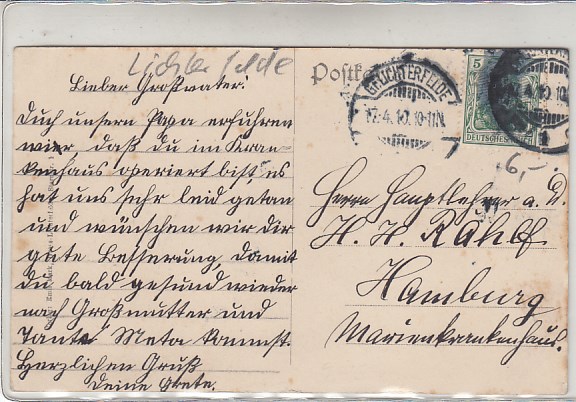 Lichterfelde
Postk
GR. LICHTERFELDE
17.4.10. 10-11N
5
DEUTSCHES REICH
6,-
Lieber Großvater!
Durch unsern Papa erfuhren
wir daß du im Kran-
kenhaus operiert bist, es
hat uns sehr leid getan
und wünschen wir dir
gute Besserung damit
du bald gesund wieder
nach Großmutter und
Tante Meta kommst.
Herzlichen Gruß
deine Grete.
Herrn Hauptlehrer a. D.
H. H. Rahlf
Hamburg
Marienkrankenhaus.